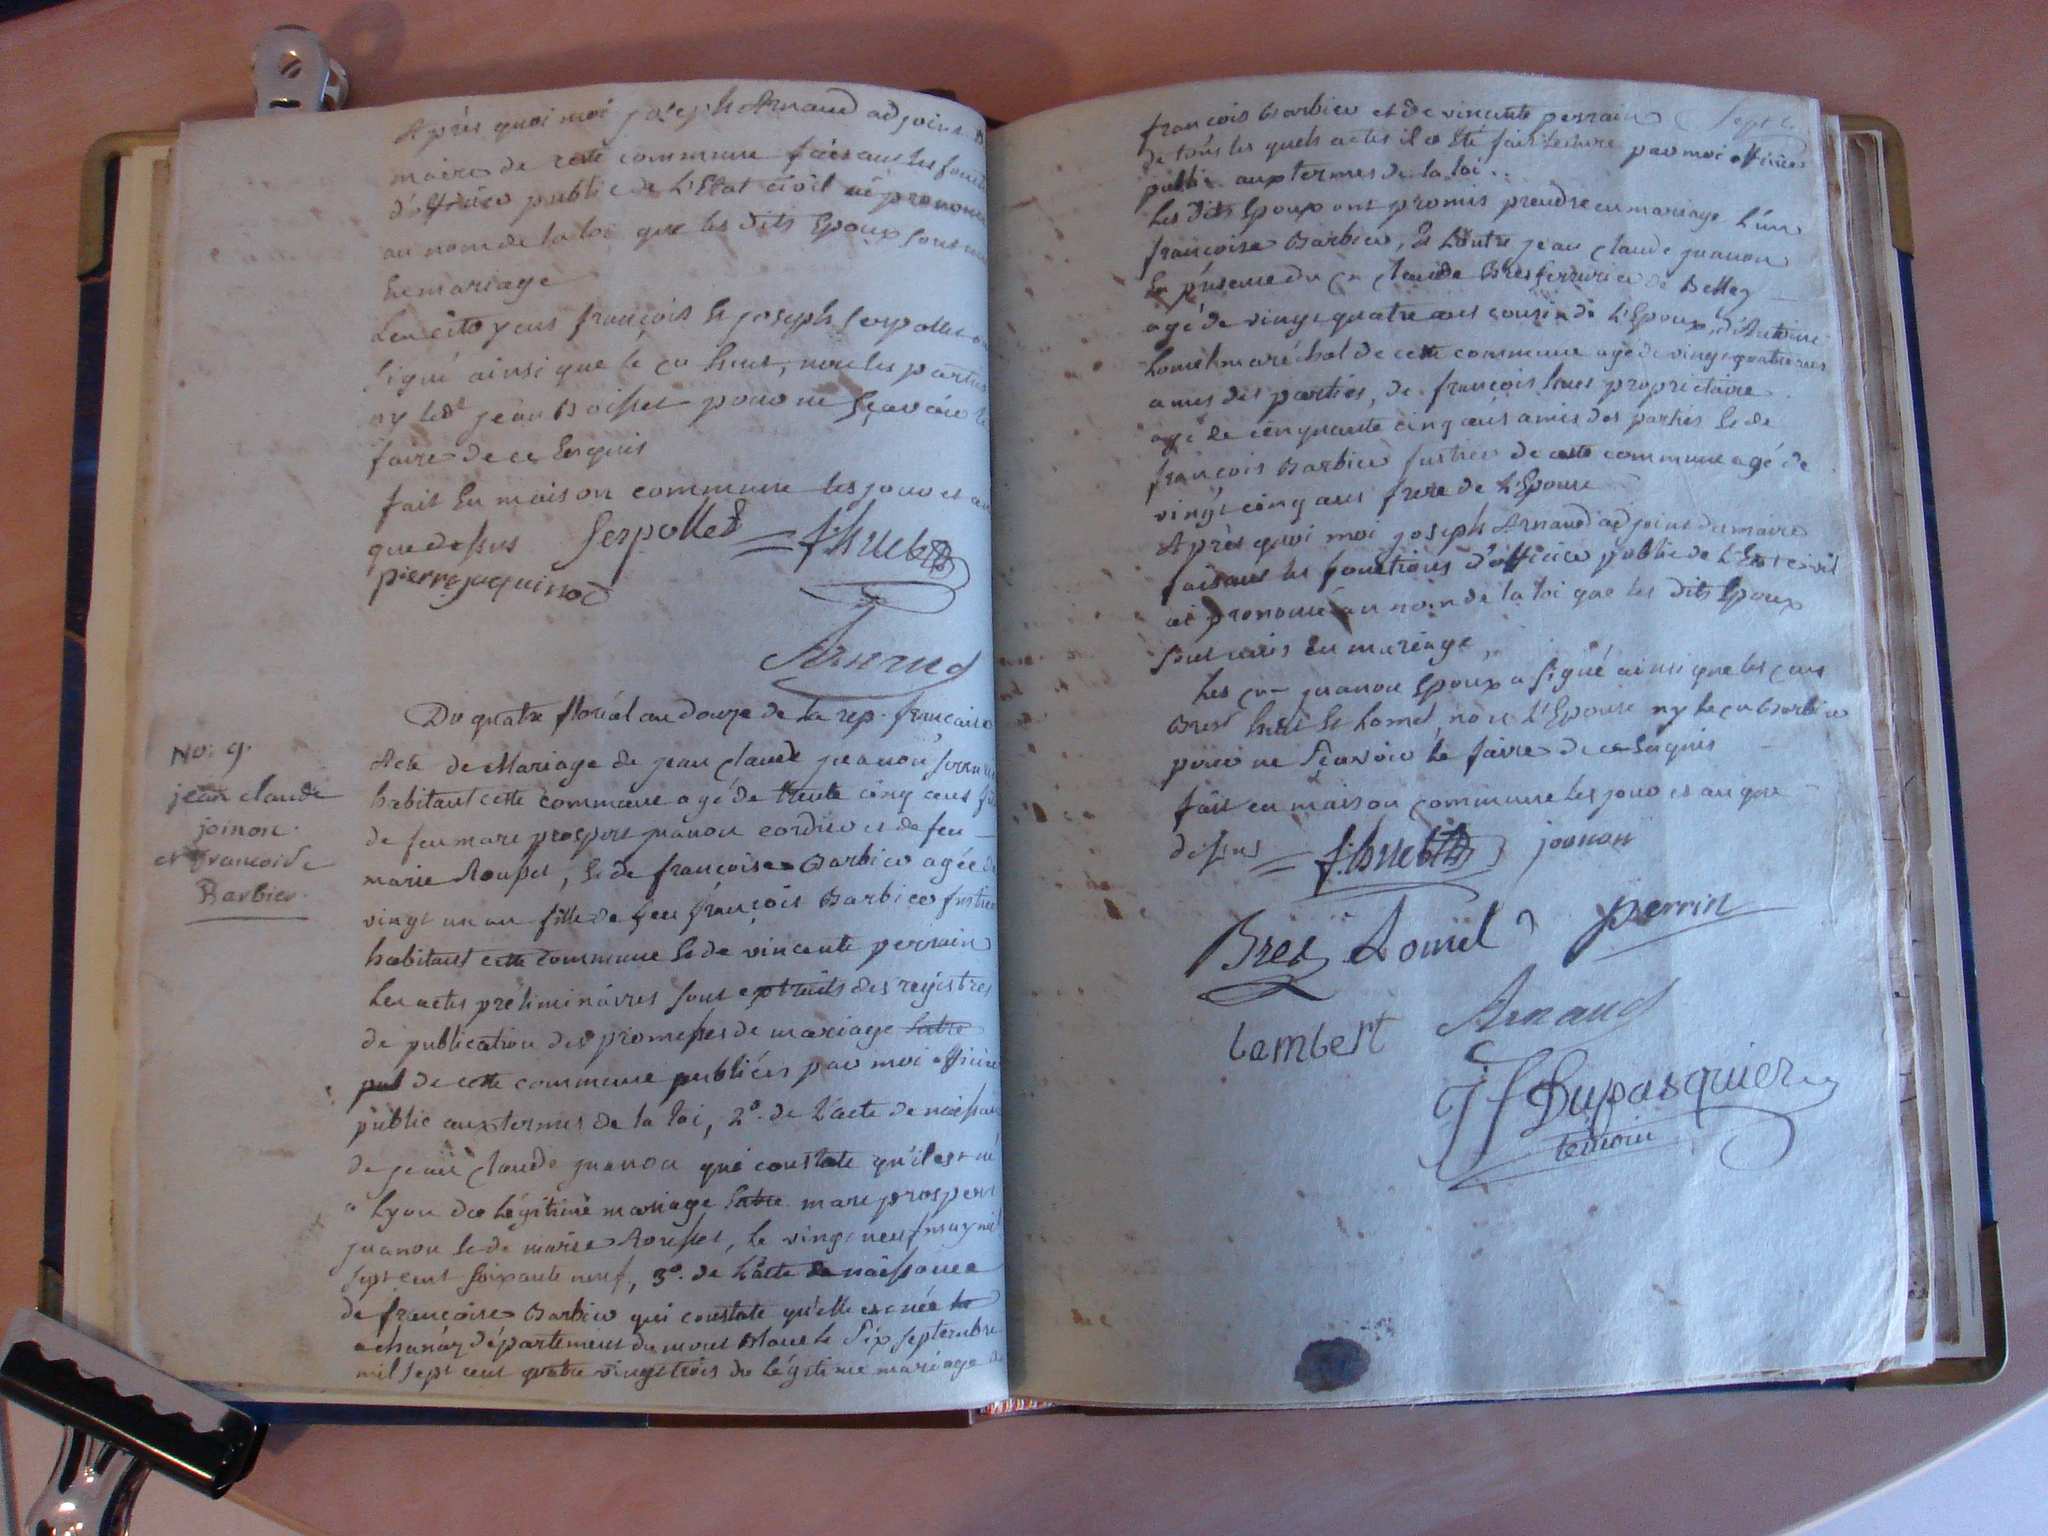 Après quoi moi joseph Arnaud adjoint
maire de cette commune faisant les
d'officier public de L'Etat civil ai prononcé
au nom de la loi que les dits Epoux sont
En mariage
Les citoyens françois Et joseph Serpollet
signé ainsi que le cn huet, non les parties
ny ledt jean Boisset pour ne sçavoir le
faire de ce Enquis
fait En maison commune les jour et an
que dessus Serpollet f. huet
pierre jaquinod
Arnaud
Du quatre floréal an douze de la rep. française
No. 9.
jean claude
joinon
et francoise
Barbier.
Acte de Mariage de jean claude juanon
habitant cette commune agé de trente cinq ans
de feu marc prospert juanon cordier et de feu
marie Rousset, Et de françoise Barbier agée de
vingt un an fille de feu françois Barbier
habitant cette commune Et de vincente perrain
Les actes préliminaires sont extraits des registres
de publication des promesses de mariage Entre
pub de cette commune publiées par moi officier
public aux termes de la loi, 2o. de L'acte de naissance
de jean claude juanon qui constate qu'il est né
a Lyon de Légitime mariage Entre marc prospert
juanon Et de marie Rousset, le vingt neuf may mil
sept cent soixante neuf, 3o. de L'acte de naissance
de françoise Barbier qui constate qu'elle est née le
a chanaz département du mont Blanc le six septembre
mil sept cent quatre vingt trois du légitime mariage de
françois Barbier et de vincente perrain
de tous les quels actes il a été fait lecture par moi officier
public aux termes de la loi..
Les dits Epoux ont promis prendre en mariage L'un
françoise Barbier, Et L'autre jean claude juanon
En présence du cn claude Bret serrurier de Belley
agé de vingt quatre ans cousin de L'Epoux, d'Antoine
Lomel maréchal de cette commune agé de vingt quatre ans
amis des parties, de françois hues propriétaire
agé de cinquante cinq ans amis des parties Et de
françois Barbier de cette commune agé de
vingt cinq ans frere de L'Epouse
Après quoi moi joseph Arnaud adjoint du maire
faisant les fonctions d'officier public de L'Etat civil
ai prononcé au nom de la loi que les dits Epoux
sont unis En mariage,
Les cn juanon Epoux a signé ainsi que les cens
Bret huet Et Lomel, non L'Epouse ny le cn Barbier
pour ne sçavoir le faire de ce Enquis
fait en maison commune les jour et an que
dessus f. huet joonon
Bret Lomel perrin
Lambert Arnaud
Dupasquier
temoin